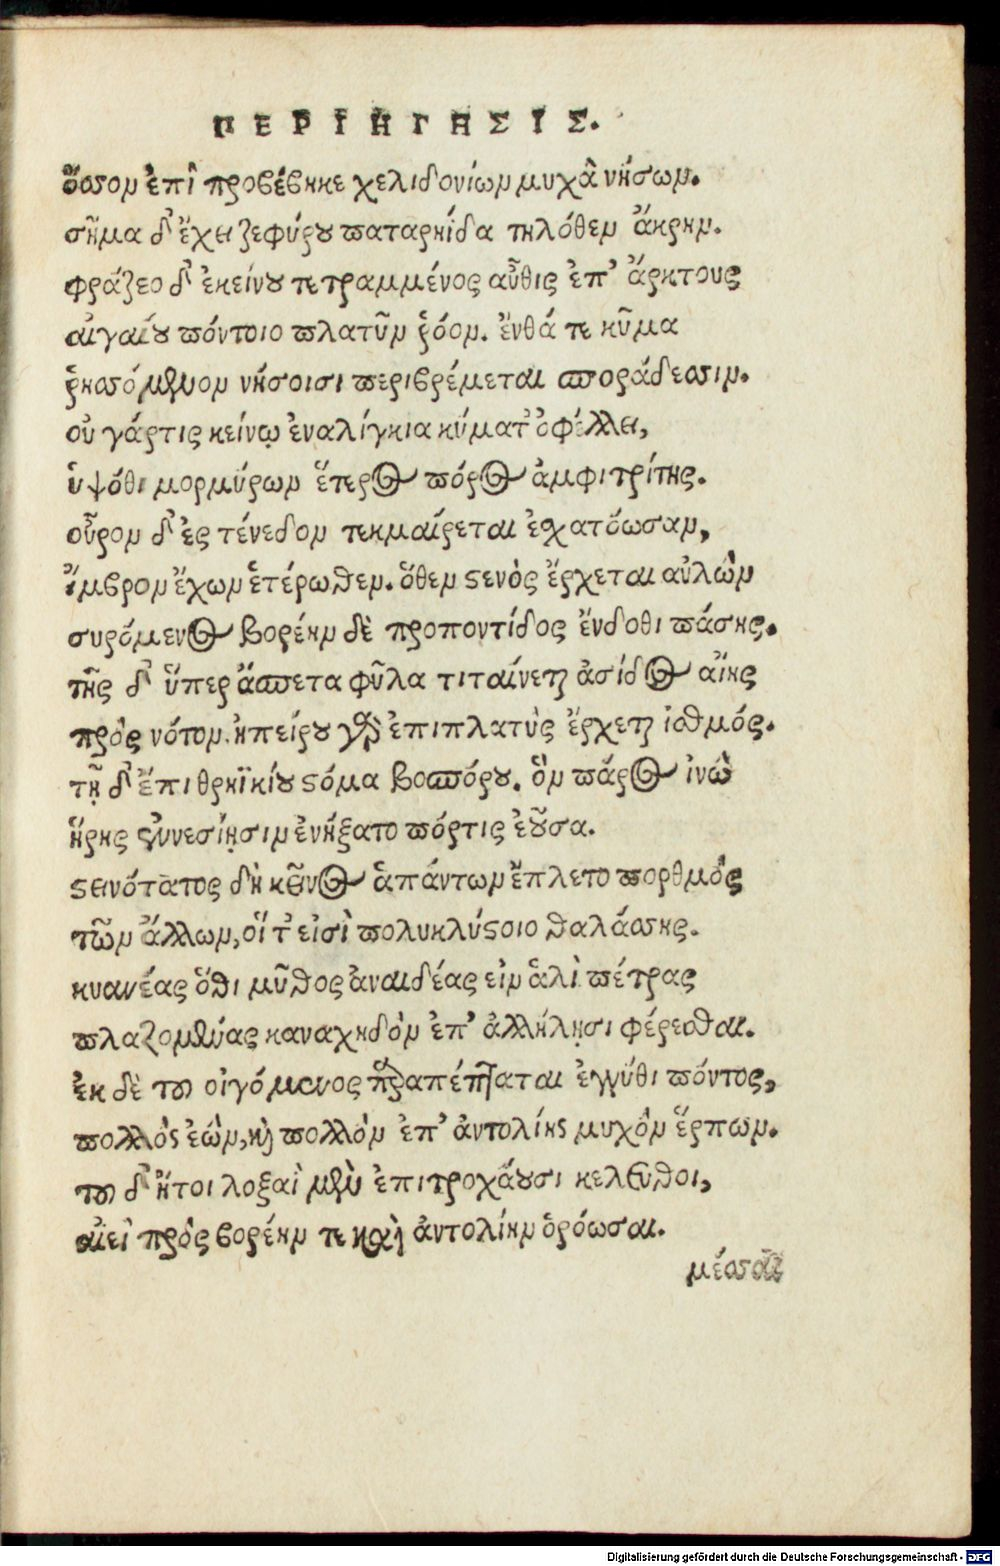 ΠΕΡΙΗΓΗΣΙΣ.
ὅσσον ἐπὶ προβέβηκε χελιδονίων μυχὰ νήσων.
σῆμα δ' ἔχει ζεφύρου παταρηίδα τηλόθεν ἄκρην.
φράζεο δ' ἐκείνου τετραμμένος αὖθις ἐπ' ἄρκτους
αἰγαίου πόντοιο πλατὺν ῥόον. ἔνθά τε κῦμα
ῥησσόμενον νήσοισι περιβρέμεται σποράδεσσιν.
οὐ γάρτις κείνῳ ἐναλίγκια κύματ' ὀφέλλει,
ὑψόθι μορμύρων ἕτερος πόρος ἀμφιτρίτης.
οὖρον δ' ἐς τένεδον τεκμαίρεται ἐσχατόωσαν,
ἴμβρον ἔχων ἑτέρωθεν. ὅθεν στενὸς ἔρχεται αὐλὼν
συρόμενος βορέην δὲ προποντίδος ἔνδοθι πάσης.
τῆς δ' ὕπερ ἄσπετα φῦλα τιταίνεται ἀσίδος αἴης
πρὸς νότον. ἠπείρου γὰρ ἐπιπλατὺς ἔρχεται ἰσθμός.
τῇ δ' ἔπι θρηϊκίου στόμα βοσπόρου. ὃν πάρος ἰνὼ
ἥρης ἐννεσίῃσιν ἐνήξατο πόρτις ἐοῦσα.
στεινότατος δὴ κεῖνος ἁπάντων ἔπλετο πορθμὸς
τῶν ἄλλων, οἵ τ' εἰσὶ πολυκλύστοιο θαλάσσης.
κυανέας ὅθι μῦθος ἀναιδέας εἰν ἁλὶ πέτρας
πλαζομένας καναχηδὸν ἐπ' ἀλλήλῃσι φέρεσθαι.
ἐκ δὲ τοῦ οἰγόμενος παραπέπταται ἐγγύθι πόντος,
πολλὸς ἐὼν, καὶ πολλὸν ἐπ' ἀντολίης μυχὸν ἕρπων.
τοῦ δ' ἤτοι λοξαὶ μὲν ἐπιτροχάουσι κελευθοι,
αἰεὶ πρὸς βορέην τε καὶ ἀντολίην ὁρόωσαι.